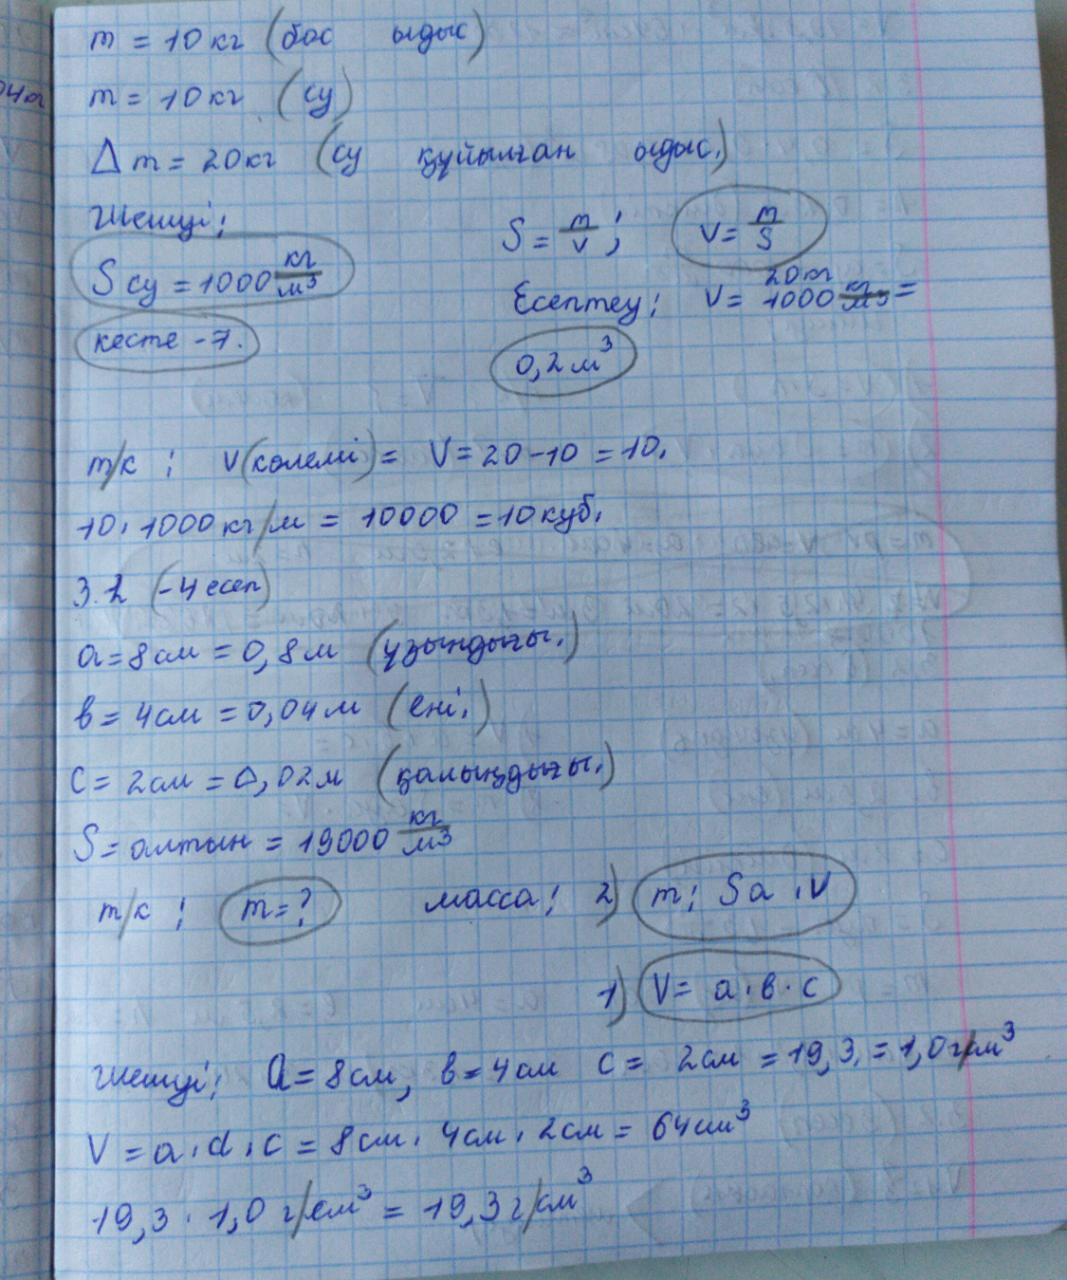 m = 10 кг (бос ыдыс)
m = 10 кг (су)
Δ m = 20 кг (су құйылған ыдыс.)
Шешуі;
S = m/v ; v = m/S
S су = 1000 кг/м³
Есептеу; v = 20 кг/1000 кг/м³ =
кесте - 7.
0,2 м³
т/к ; v (көлемі) = V = 20 - 10 = 10.
10 · 1000 кг/м = 10000 = 10 куб.
3.2 (-4 есеп)
a = 8 см = 0,8 м (ұзындығы.)
в = 4 см = 0,04 м (ені.)
c = 2 см = 0,02 м (қалыңдығы.)
S = алтын = 19000 кг/м³
т/к ; m = ? масса; 2) m ; Sa · V
1) V = a · в · c
Шешуі; a = 8 см, в = 4 см c = 2 см = 19,3. = 1,0 г/см³
V = a · d · c = 8 см · 4 см · 2 см = 64 см³
19,3 · 1,0 г/см³ = 19,3 г/см³